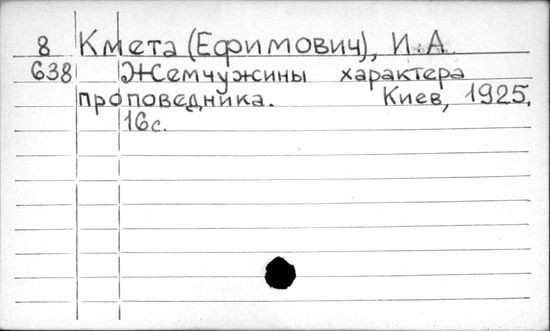 8 Кмета (Ефимович), И. А.
638 Жемчужины характера
проповедника. Киев, 1925.
16с.